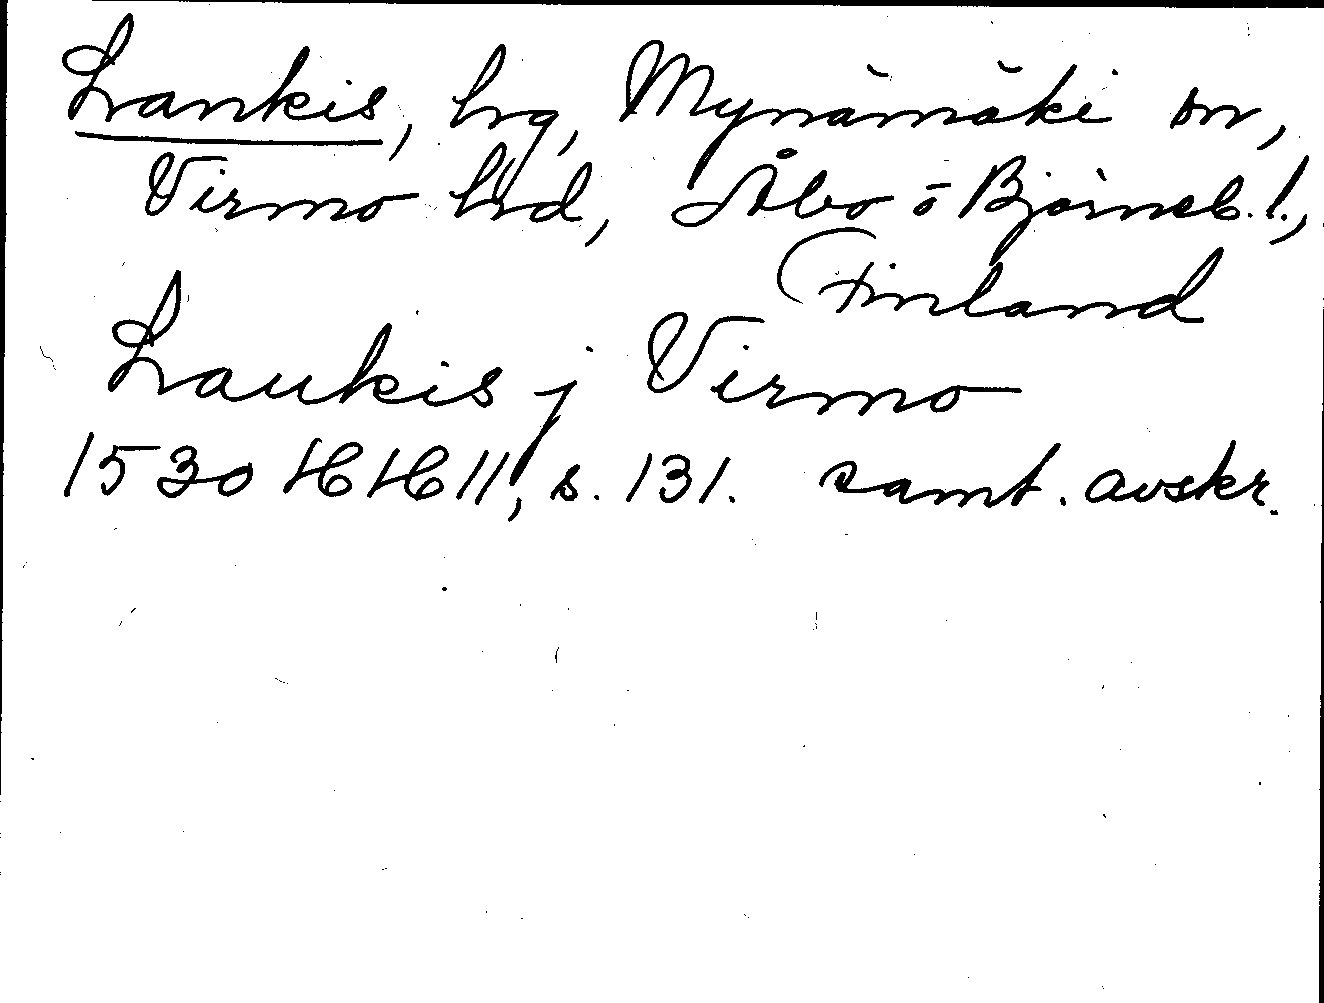 Lankis, hrg, Mynämäki sn,
Virmo hd, Åbo o Björneb. l.,
Finland
Laukis j Virmo
1530 HH II, s. 131. samt. avskr.